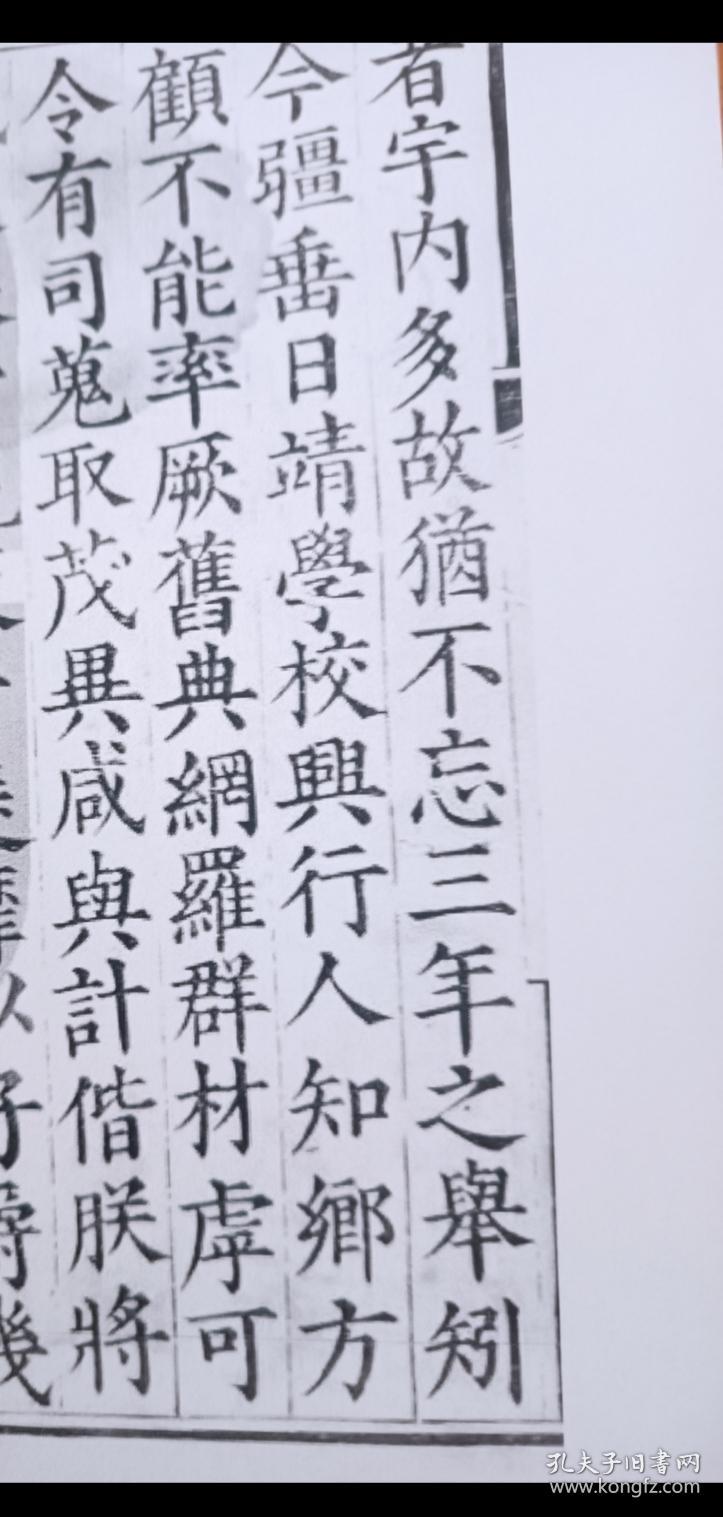 者宇内多故猶不忘三年之舉矧
今疆埀日靖學校興行人知鄉方
顧不能率厥舊典網羅群材虖可
令有司蒐取茂異咸與計偕朕將
孔夫子旧书网
www.kongfz.com